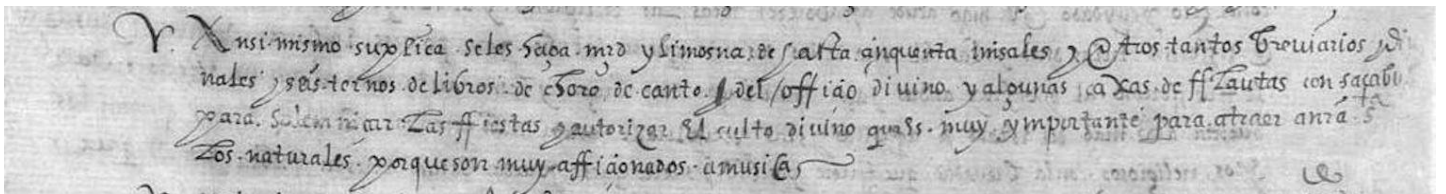 V. Ansi mismo suplica seles haga mrd y limosna de hasta cinquenta misales y otros tantos breviarios y di
nales y seis ternos de libros de choro de canto del officio divino y algunas caxas de fflautas con sacabu
para solemniçar las ffiestas y autorizar el culto divino ques muy ymportante para atraer a nrā stā
los naturales porque son muy afficionados a musica